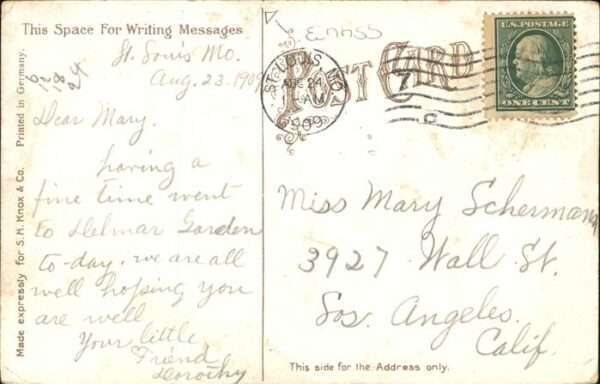 This Space For Writing Messages
St. Louis Mo.
Aug. 23. 1909
Dear Mary.
having a
fine time went
to Delmar Garden
to-day. we are all
well hopsing you
are well
Your little
Friend
Dorothy
Made expressly for S.H. Knox & Co. Printed in Germany.
POST CARD
ST. LOUIS, MO.
AUG 24
AM
1909
7
C
U.S. POSTAGE
ONE CENT
Miss Mary Schermann
3927 Wall St.
Los. Angeles.
Calif.
This side for the Address only.